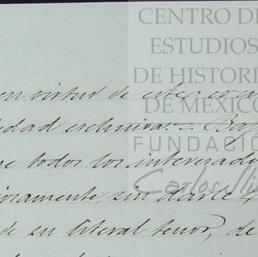 CENTRO DE
ESTUDIOS
DE HISTORI
DE MÉXICO
FUNDACIÓ
Carlos Sli
en virtud de este
edad exclusiva = Ba
e todos los interesado
samente, sin darle
de su literal tenor, de